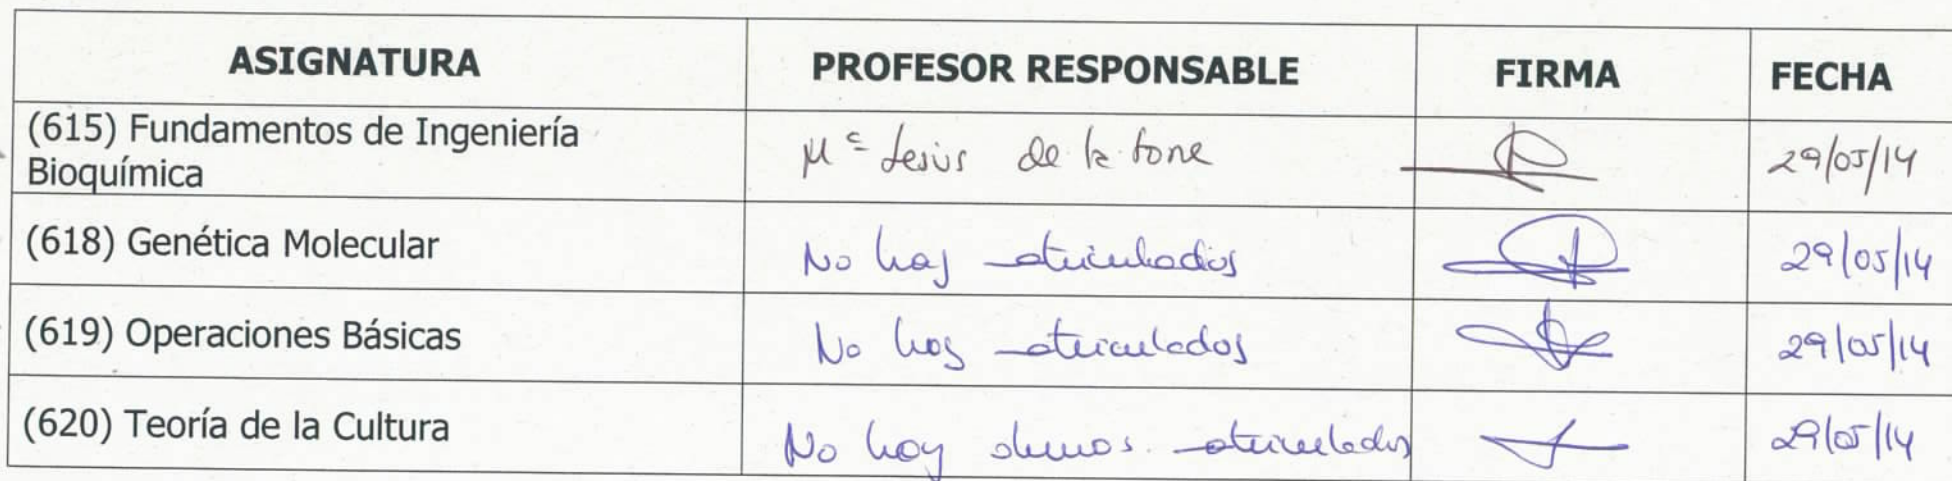 ASIGNATURA PROFESOR RESPONSABLE FIRMA FECHA
(615) Fundamentos de Ingeniería
Bioquímica
Mª Jesús de la Torre 29/05/14
(618) Genética Molecular No hay matriculados 29/05/14
(619) Operaciones Básicas No hay matriculados 29/05/14
(620) Teoría de la Cultura No hay alumnos matriculados 29/05/14